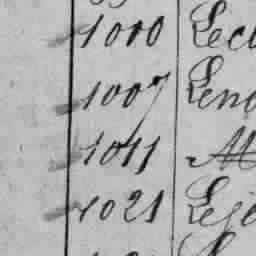 1000 Lecl
1007 Leno
1011
1021 Leje